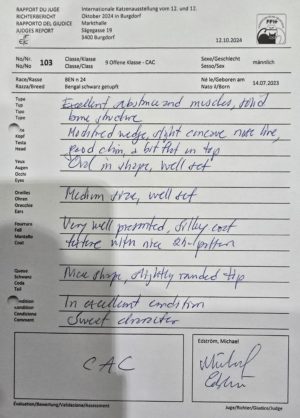 RAPPORT DU JUGE
RICHTERBERICHT
RAPPORTO DEL GIUDICE
JUDGES REPORT
Internationale Katzenausstellung vom 12. und 12.
Oktober 2024 in Burgdorf
Markthalle
Sägegasse 19
3400 Burgdorf
FFH
12.10.2024
No/Nr. 103
No/No.
Classe/Klasse
Classe/Class
9 Offene Klasse - CAC
Sexe/Geschlecht
Sesso/Sex
männlich
Race/Rasse
Razza/Breed
BEN n 24
Bengal schwarz getupft
Né le/Geboren am
Nato il/Born
14.07.2023
Type
Typ
Tipo
Type
Excellent, and muscles, solid
bone structure
Tête
Kopf
Testa
Head
Modified wedge, slight concave nose line,
good chin, a bit flat on top
Yeux
Augen
Occhi
Eyes
Oval in shape, well set
Oreilles
Ohren
Orecchie
Ears
Medium size, well set
Fourrure
Fell
Mantello
Coat
Very well presented, silky coat
texture with nice pattern
Queue
Schwanz
Coda
Tail
Nice shape, slightly rounded tip
Condition
Kondition
Condizione
Comment
In excellent condition
Sweet character
CAC
Edström, Michael
Michael
Edström
Évaluation/Bewertung/Validazione/Assessment
Juge/Richter/Giudice/Judge